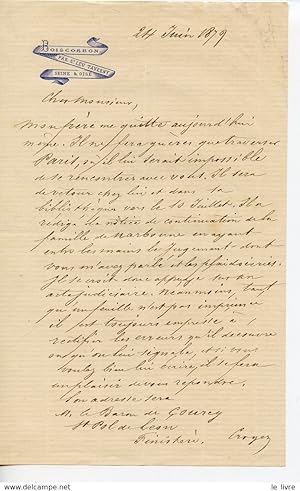 24 Juin 1879
BOISCORBON
PAR St LEU TAVERNY
SEINE & OISE
Cher Monsieur,
Mon frère me quitte aujourd'hui
même. Il ne fera guères que traverser
Paris, où il lui serait impossible
de se rencontrer avec vous. Il sera
de retour chez lui et dans sa
bibliothèque vers le 10 Juillet. Il a
rédigé la notice de continuation de la
famille de Narbonne en ayant
entre les mains le Jugement dont
vous m'avez parlé et les plaidoieries.
Il se croit donc appuyé sur un
acte judiciaire. Néanmoins, tant
qu'un feuille n'est pas imprimée
il est toujours empressé à
rectifier les erreurs qu'il découvre
ou qu'on lui signale, et si vous
voulez bien lui écrire, il se fera
un plaisir de vous répondre.
Son adresse sera
Mr le Baron de Gourcy
St Pol de Léon
Finistère. Croyez
www.delcampe.net
le livre